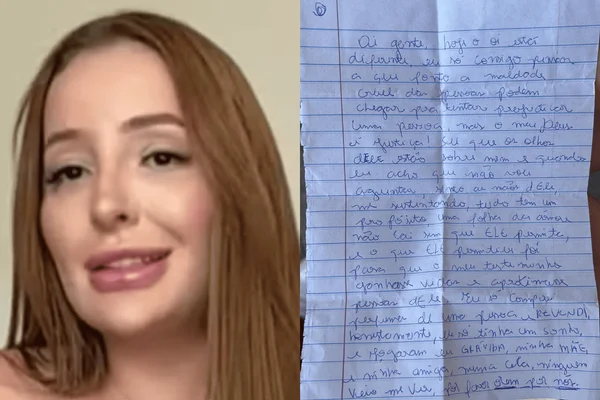 Oi gente, hoje o oi está
diferente, eu só consigo pensar
a que ponto a maldade
cruel das pessoas podem
chegar pra tentar prejudicar
uma pessoa, mas o meu Deus
é justiça! Sei que os olhos
dele estão sobre mim e quando
eu acho que não vou
aguentar, sinto as mãos dele,
me sustentando, tudo tem um
propósito uma folha da árvore
não cai sem que ELE permita,
e o que ELE permitiu foi
para que o meu testemunho
ganhasse vidas e aproximasse
pessoas dele. Eu só comprei
perfumes de uma pessoa e REVENDI,
honestamente, eu só tinha um sonho,
e jogaram eu GRÁVIDA, minha MÃE,
e minha amiga, numa cela, ninguém
veio me ver, por favor orem por nós.